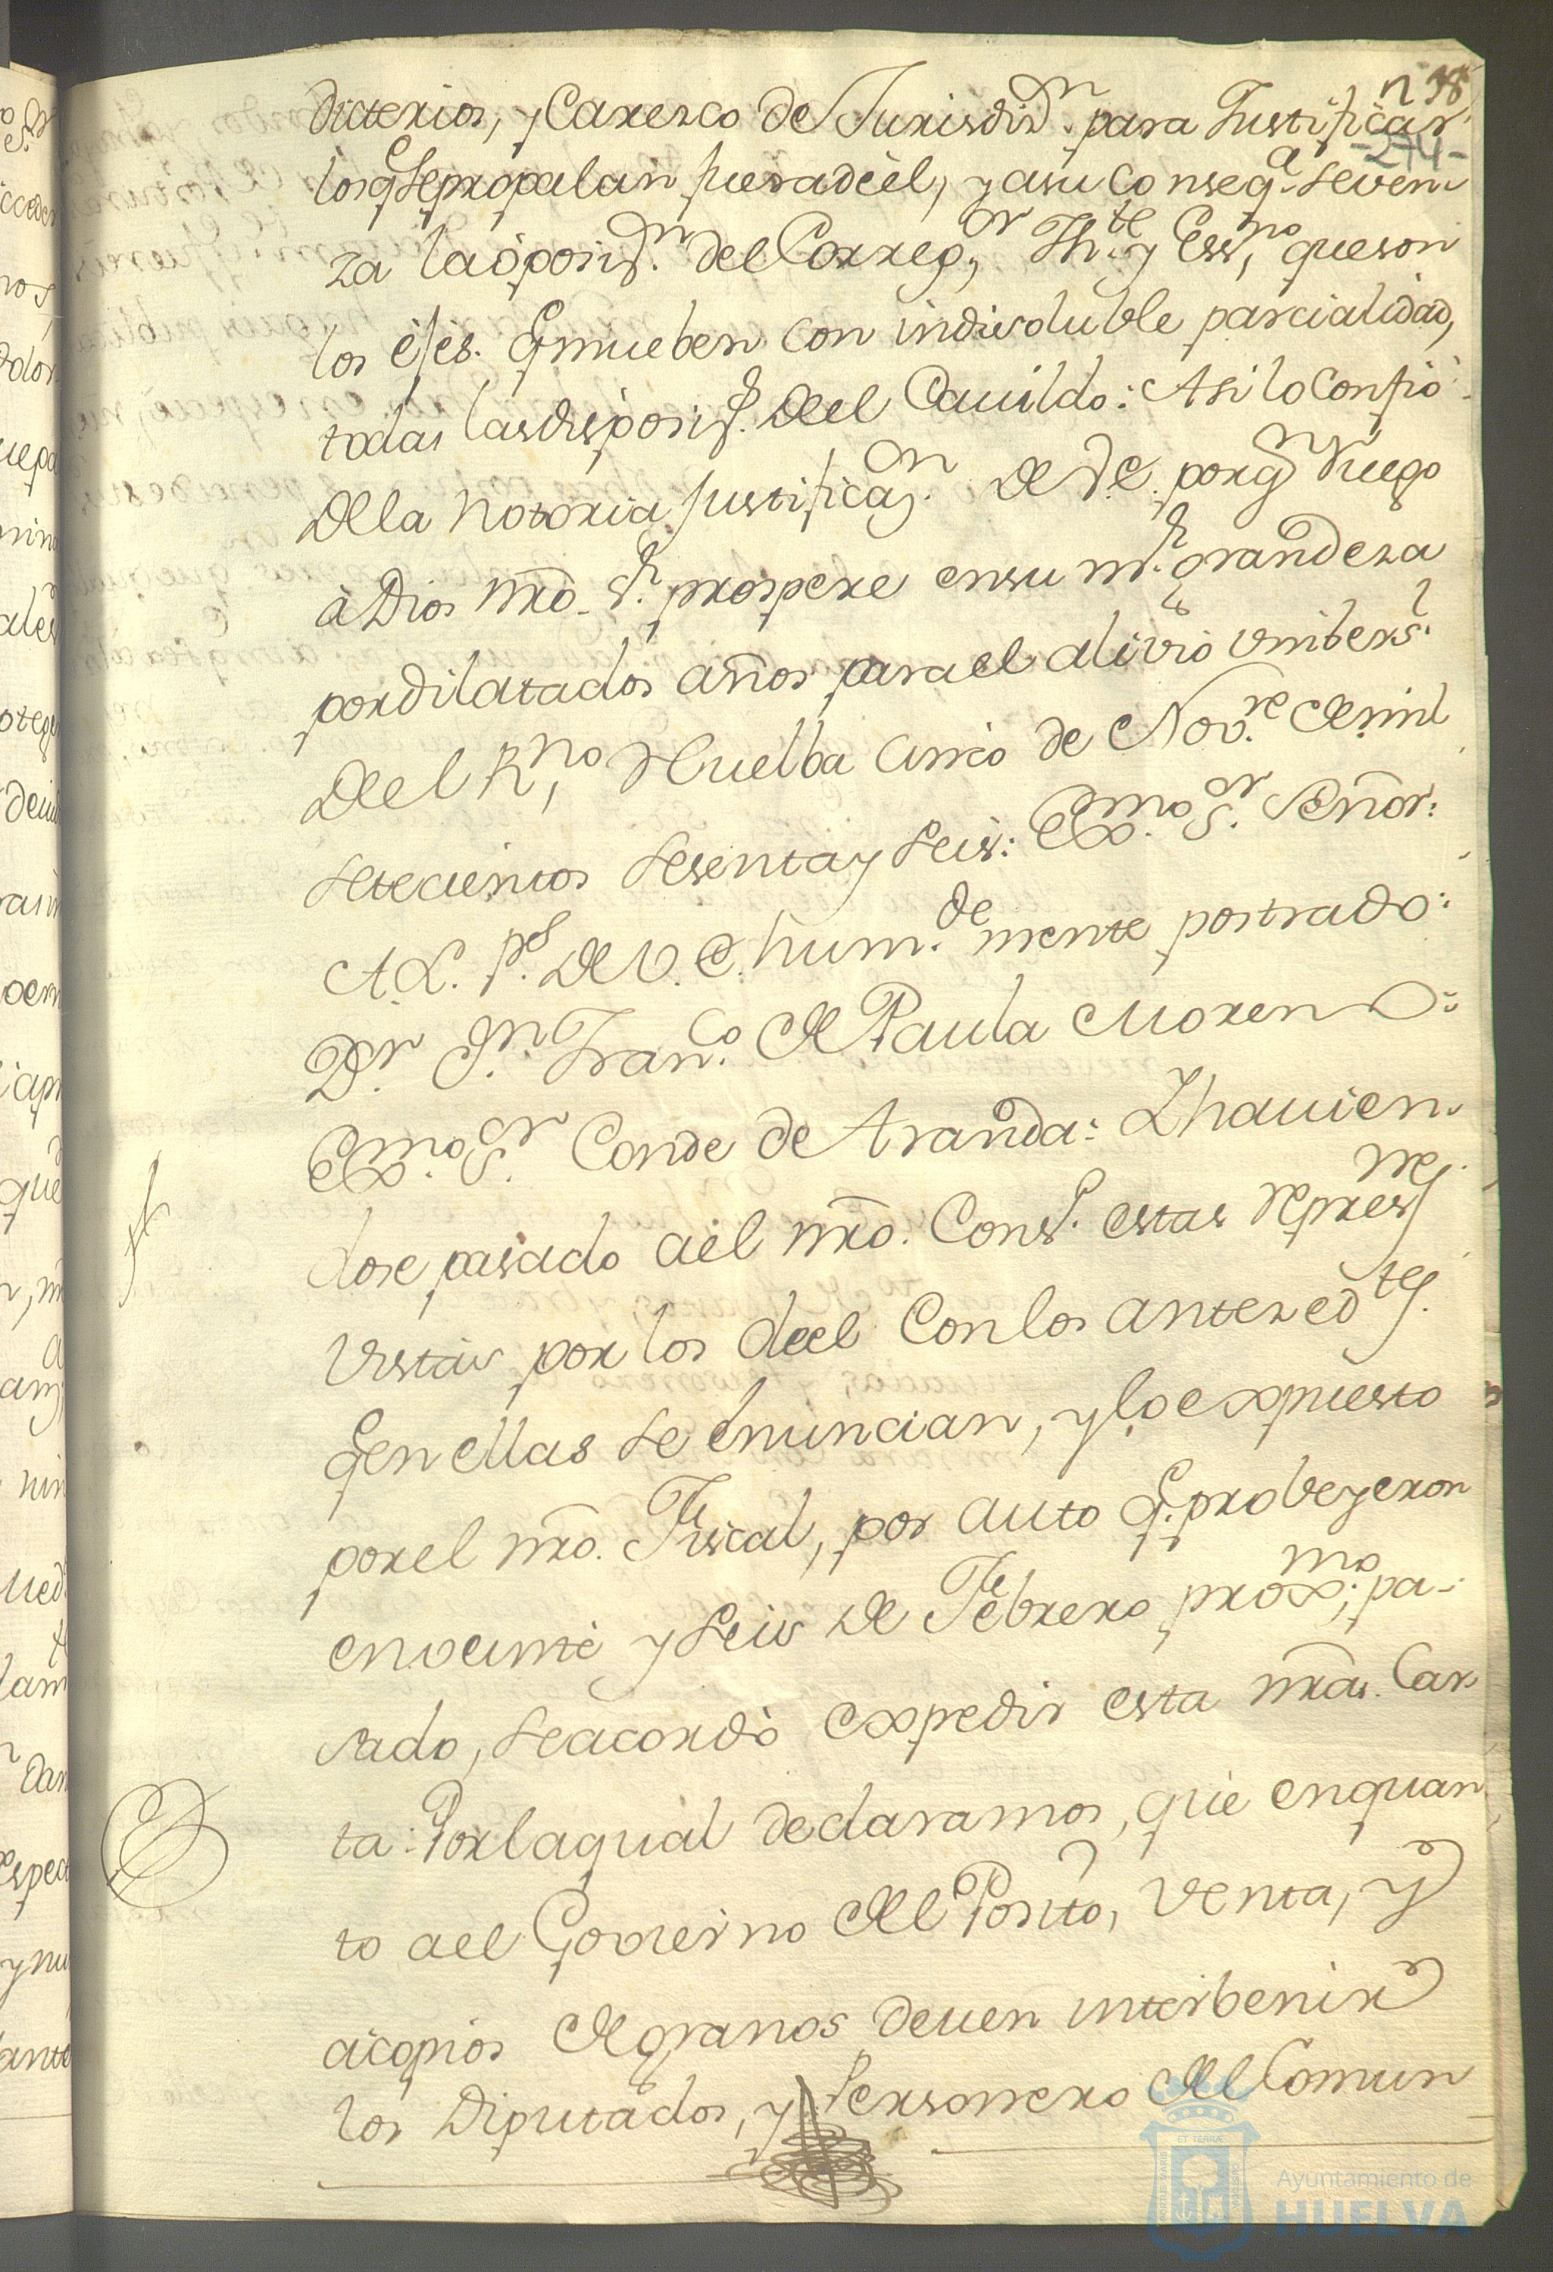 n 38
-274-
dicterios, y Carezco de Jurisdiz.n para Justificar
los q.e se propalan fuera de èl, y a su conseq.a se ven-
za la oposiz.n del Correg.or, Th.te y Ess.no, que son
los èjes. q.e mueben con indisoluble parcialidad,
todas las disposiz.s del Cavildo: Asi lo Confio
de la notoria justificaz.n de V.E. por q.n Ruego
à Dios nrô. S.r prospere en su m.r grandeza
por dilatados años para el alivio vnibers.l
del R.no, Huelba cinco de Nov.re de mil
setecientos sesenta y seis: Ex.mo S.or Señor:
A. L. P.s de V. E. hum.de mente postrado:
D.r D.n Fran.co de Paula Moreno:
Ex.mo S.or Conde de Aranda: Y havien-
dose pasado a èl nrô. Cons.o estas represnes.
vistas por los de el con los antezed.tes.
q.e en ellas se enuncian, y lo expuesto
por el nrô. Fiscal, por auto q.e probeyeron
en veinte y seis de Febrero prox.mo, pa-
sado, se acordò expedir esta nrâ. Car-
ta: Por la qual declaramos, que en quan-
to a el Govierno del Posito, venta, y
acopios de granos deven interbenir
los Diputados, y Personero del Comun
Ayuntamiento de
HUELVA